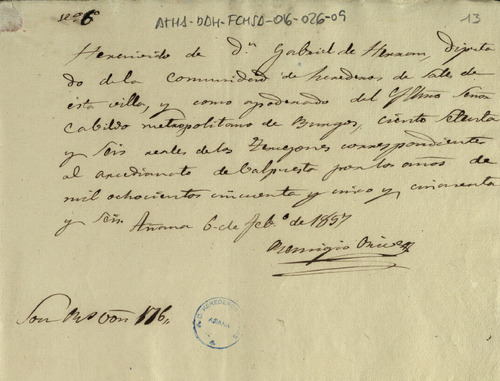 ATHA-DDH-FCHSD-016-026-09
13
He recivido de Dn Gabriel de Herran, Diputa
do de la Comunidad de herederos de Sales de
esta villa, y como apoderado del Yllmo Señor
Cabildo metropolitano de Burgos, ciento setenta
y seis reales de los Terrajones correspondientes
al arcedianato de Valpuesta por los años de
mil ochocientos cincuenta y cinco y cincuenta
y seis. Añana 6 de feb.º de 1857
Remigio
Son Rs von 176,,